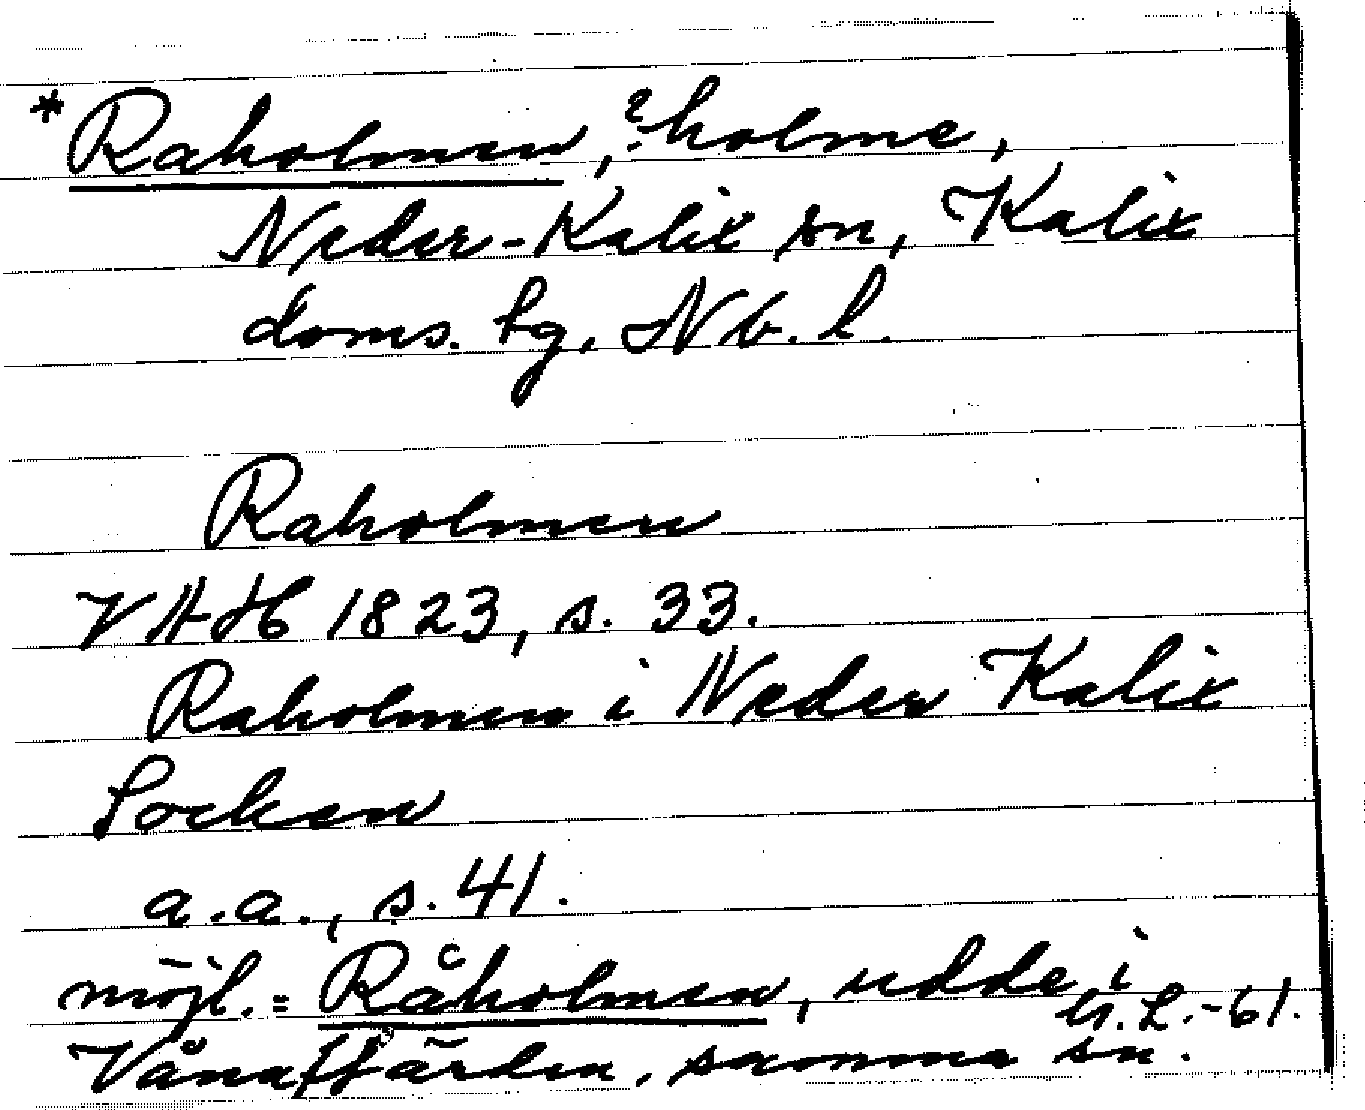 *Raholmen, ?holme,
Neder-Kalix sn, Kalix
doms. tg. Nb. l.
Raholmen
VAH 1823, s. 33.
Raholmen i Neder Kalix
Socken
a.a., s. 41.
möjl. = Råholmen, udde i
G. L. -61.
Vånafjärden, samma sn.